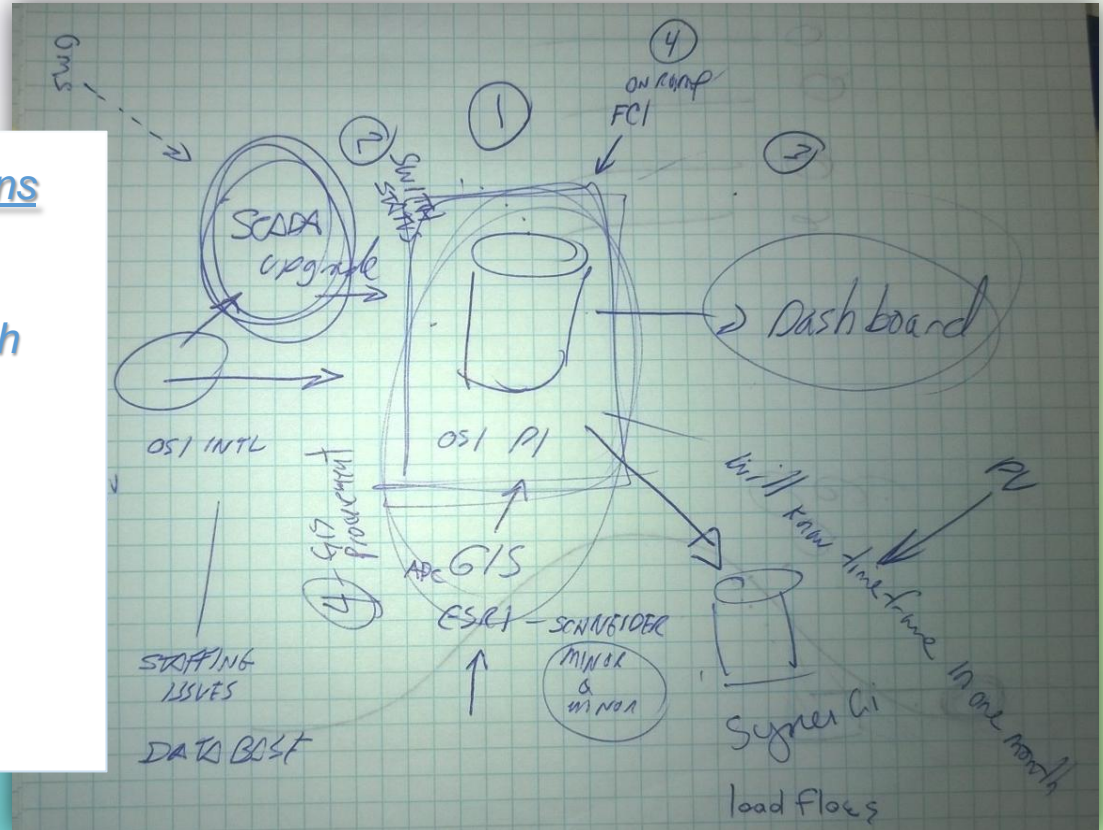 ns
h
SWG
4
ON RAMP
FCI
1
2
SWITCH
STATUS
3
SCADA
upgrade
Dashboard
OSI INTL
OSI PI
4
GIS
Procurement
ADC GIS
ESRI - SCHNEIDER
MINOR
&
MINOR
STAFFING
ISSUES
DATABASE
PV
will know timeframe in one month
SynerGi
load flows